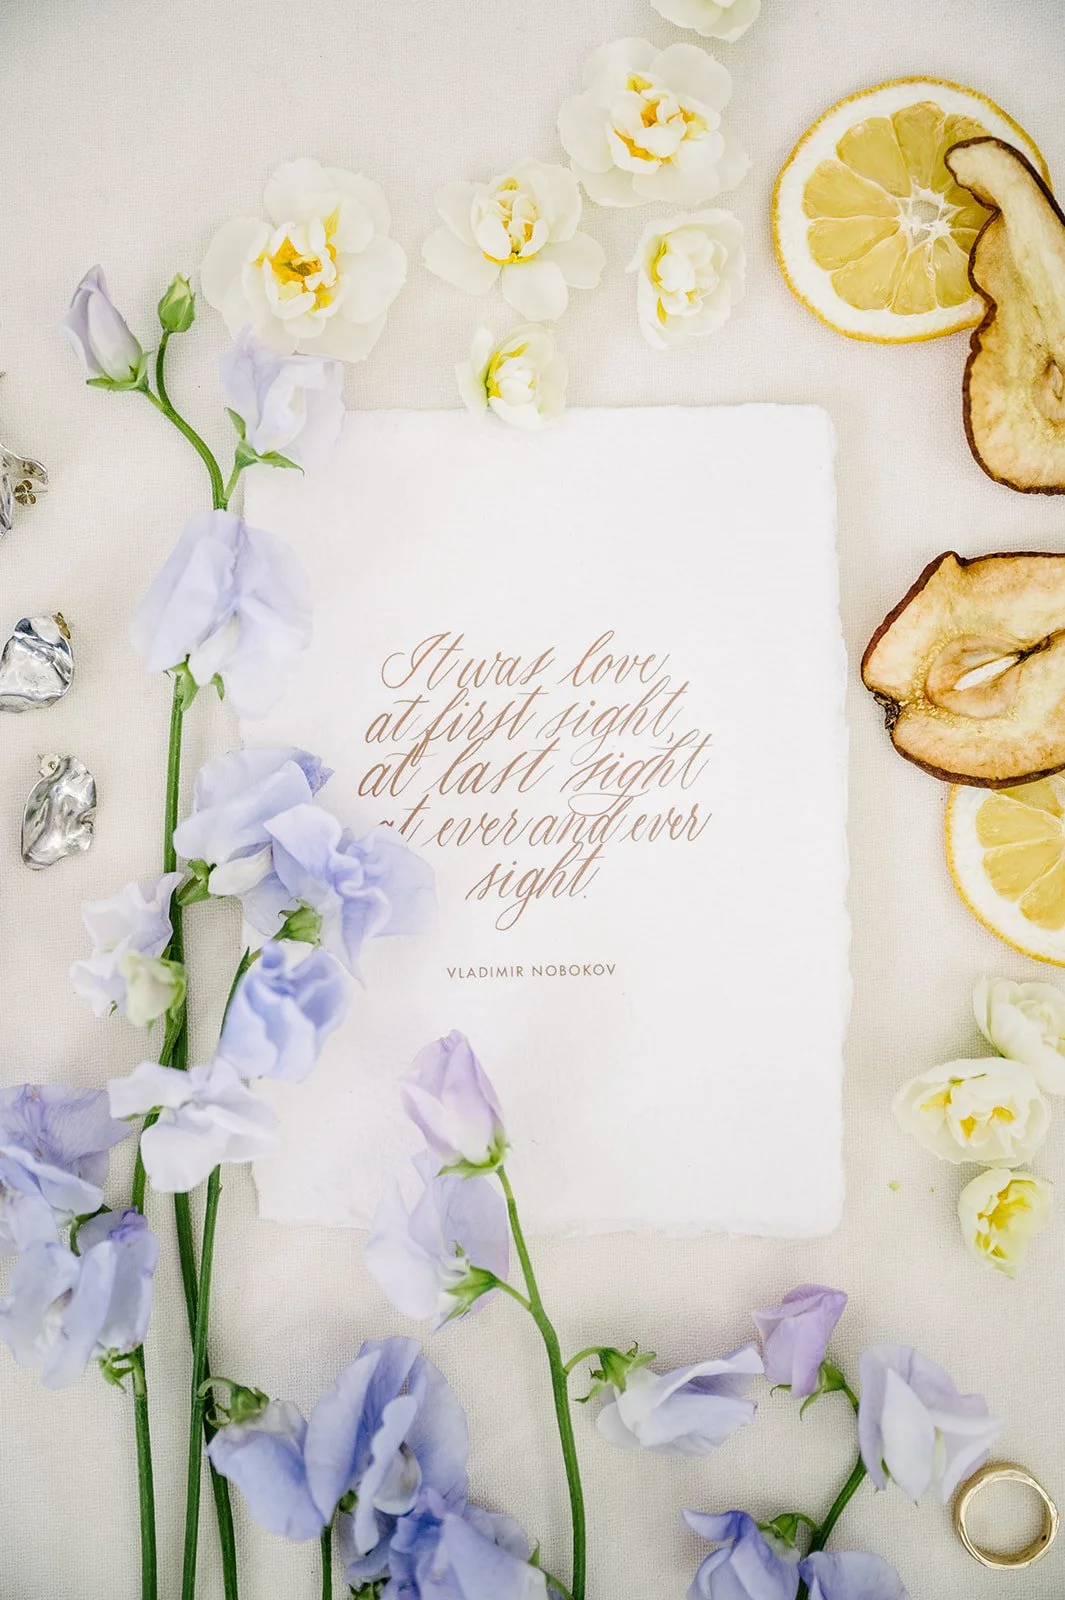 It was love
at first sight,
at last sight
at ever and ever
sight.
VLADIMIR NOBOKOV